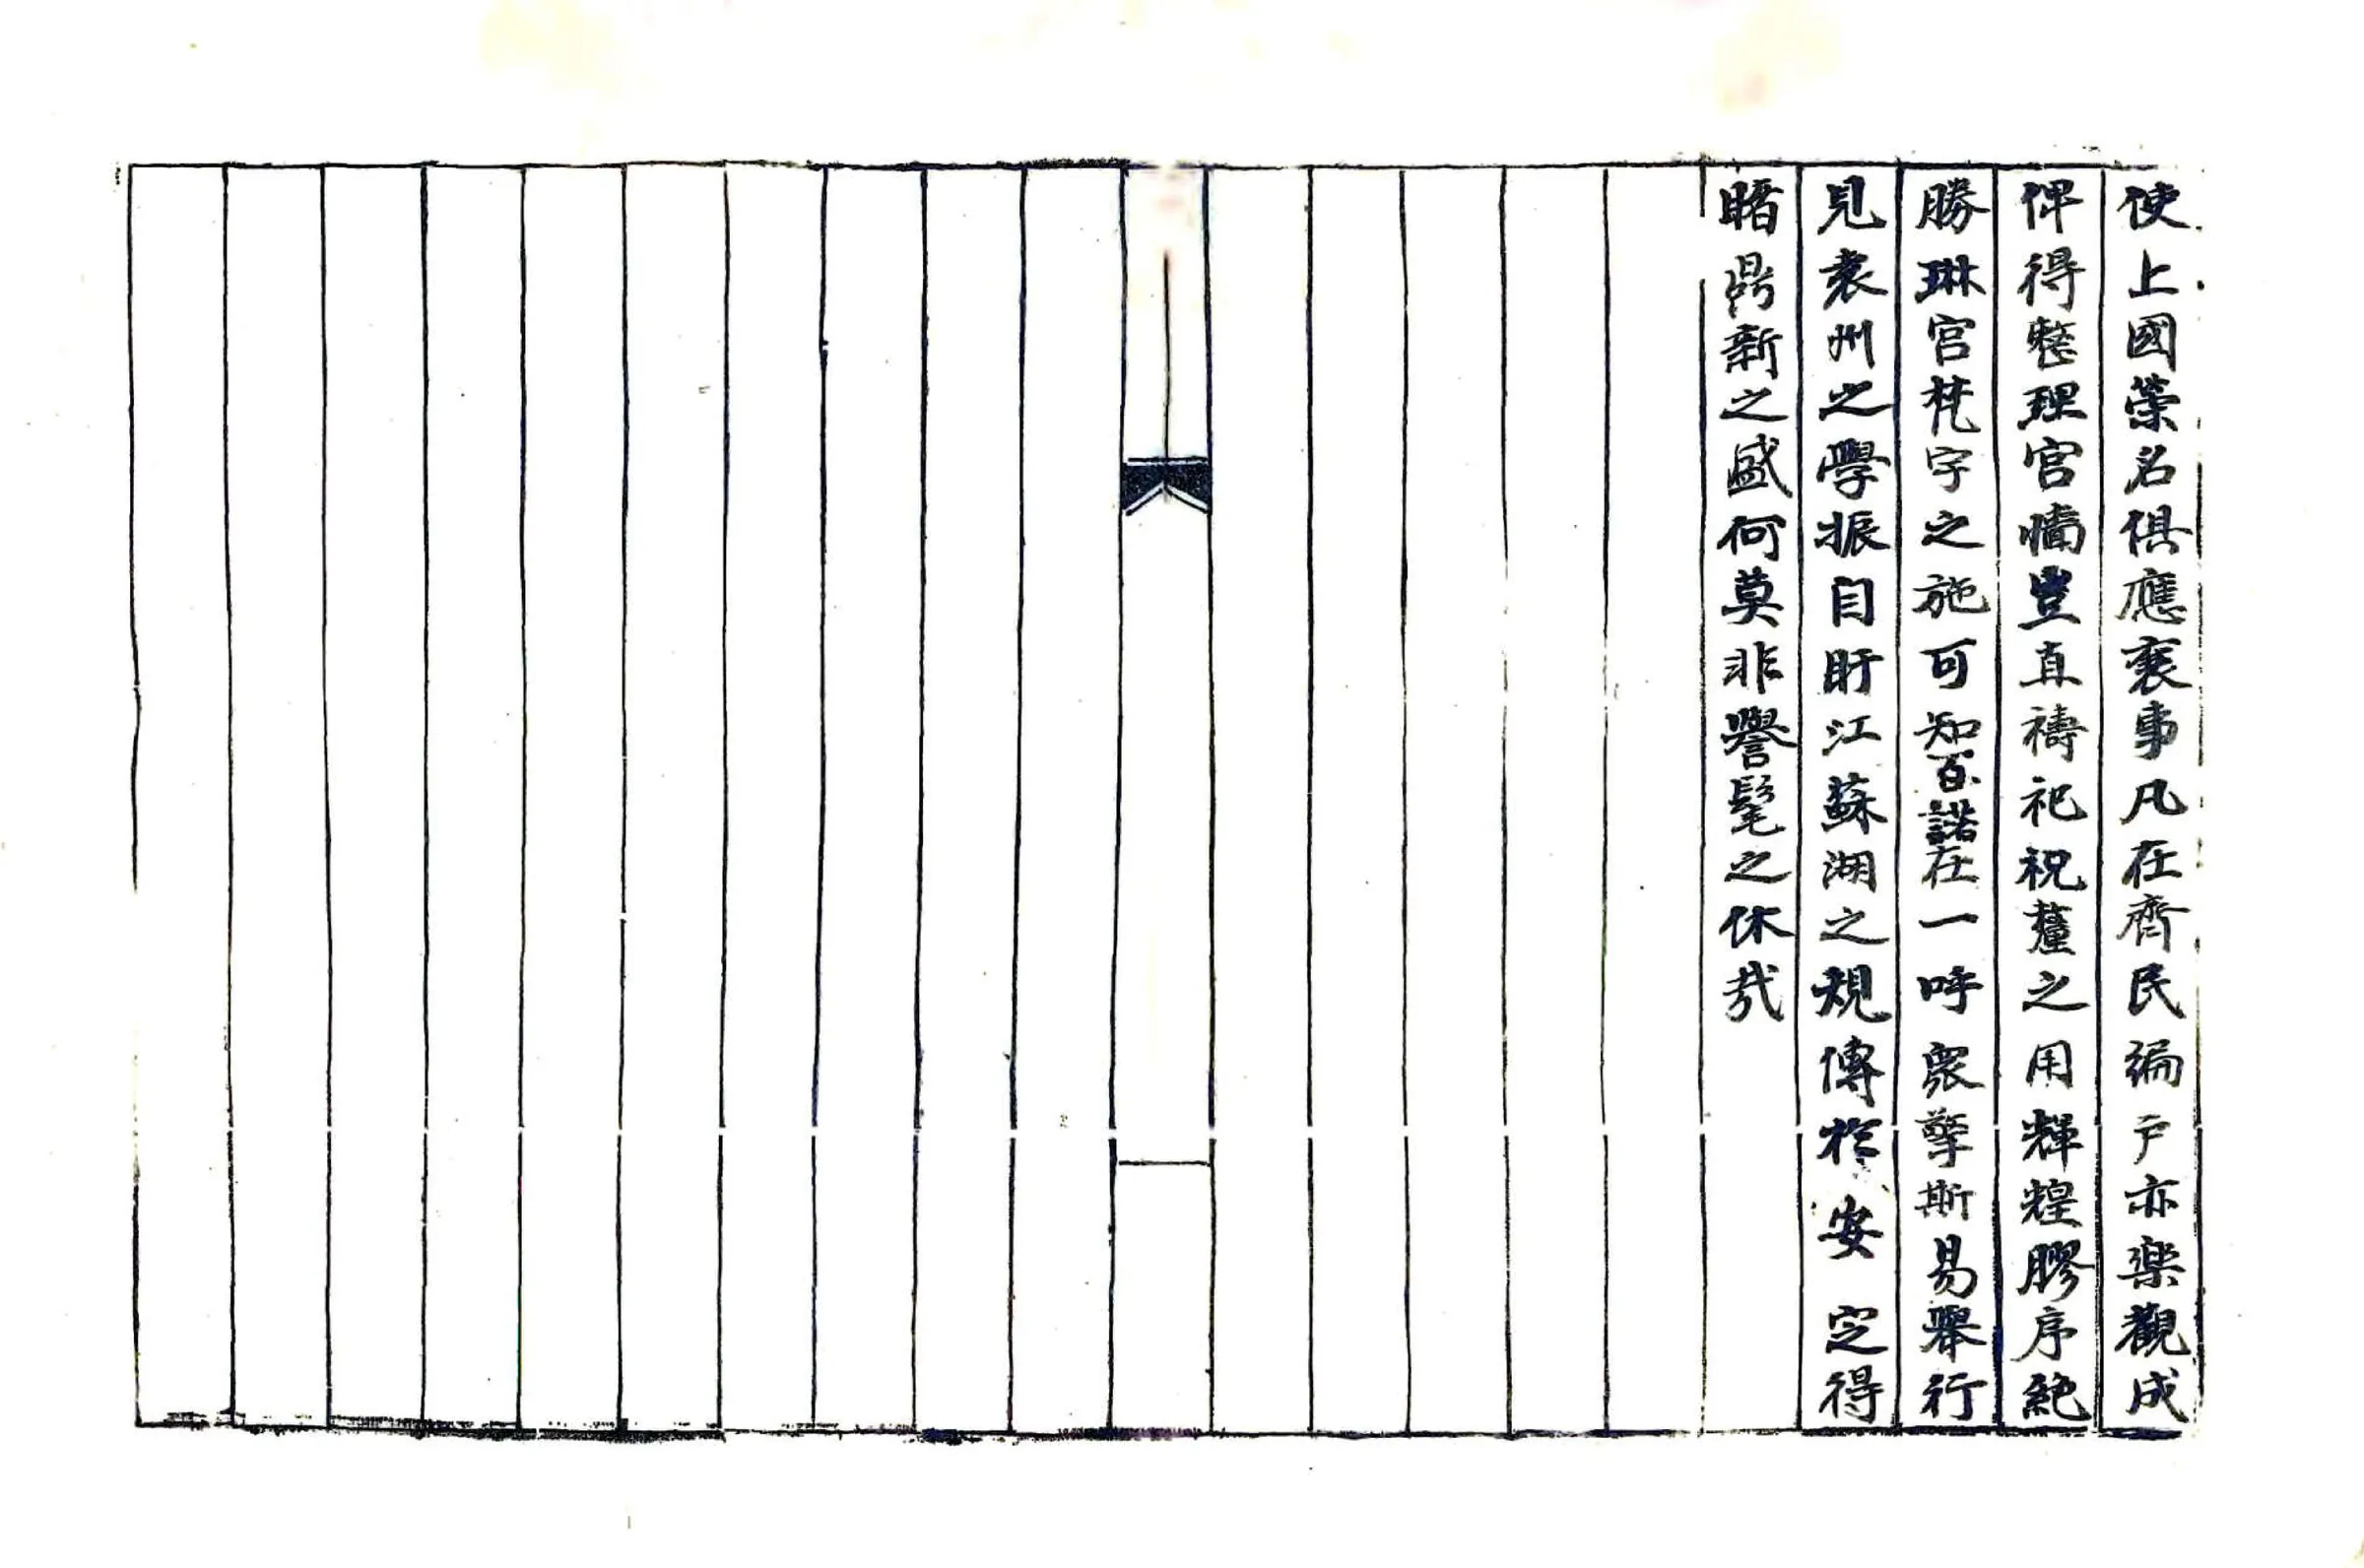 使上國榮名俱應襄事凡在齊民編戶亦樂觀成
俾得整理宮牆豈直禱祀祝釐之用輝煌膠序絶
勝琳宮梵宇之施可知百諾在一呼眾擎斯易舉行
見袁州之學振自盱江蘇湖之規傳於安定得
睹鼎新之盛何莫非譽髦之休哉